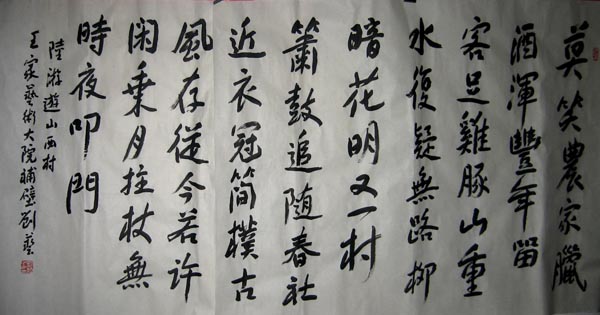 莫笑農家臘
酒渾豐年留
客足雞豚山重
水復疑無路柳
暗花明又一村
簫鼓追隨春社
近衣冠簡樸古
風存從今若許
閑乘月拄杖無
時夜叩門
陸游遊山西村
王家藝術大院補壁劉藝